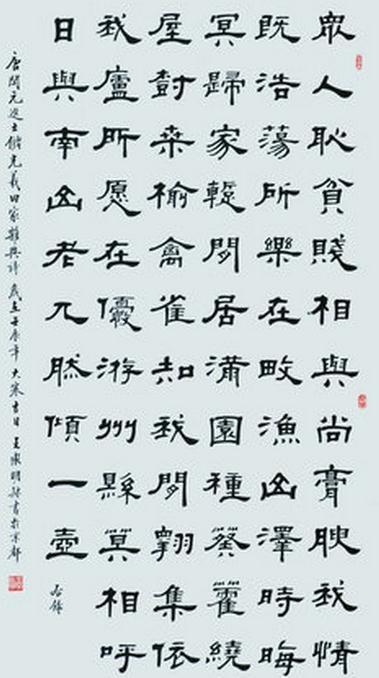 衆人耻貧賤相與尚膏腴我情
既浩蕩所樂在畋漁山澤時晦
冥歸家蹔閒居滿園種葵藿繞
屋樹桑榆禽雀知我閒翔集依
我廬所愿在優游州縣莫相呼
日與南山老兀然傾一壺
唐開元進士儲光羲田家雜興詩 歲在壬辰年大寒吉日王明書於京都